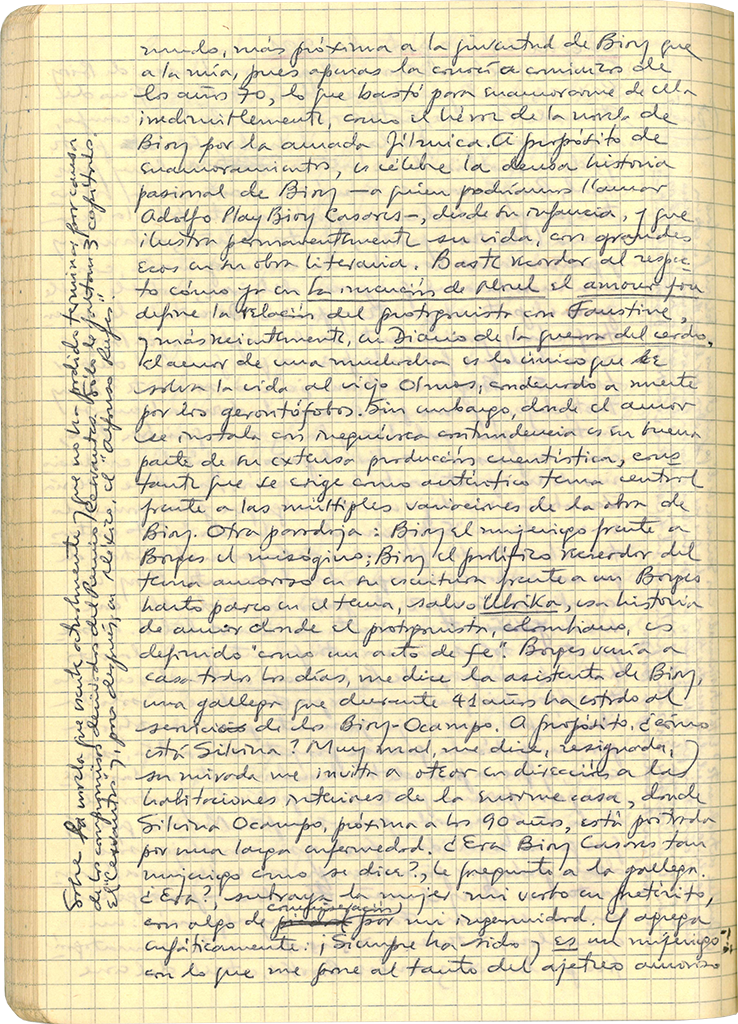 mundo, más próxima a la juventud de Bioy que
a la mía, pues apenas la conocí a comienzos de
los años 70, lo que bastó para enamorarme de ella
irredimiblemente, como el héroe de la novela de
Bioy por la amada fílmica. A propósito de
enamoramientos, es célebre la densa historia
pasional de Bioy —a quien podríamos llamar
Adolfo Play Bioy Casares—, desde su infancia, y que
ilustra permanentemente su vida, con grandes
ecos en su obra literaria. Baste recordar al respec-
to cómo ya en La invención de Morel el amour fou
define la relación del protagonista con Faustine,
y más recientemente, en Diario de la guerra del cerdo,
el amor de una muchacha es lo único que le
salva la vida al viejo Olmos, condenado a muerte
por los gerontófobos. Sin embargo, donde el amor
se instala con inequívoca contundencia es en buena
parte de su extensa producción cuentística, cons
tante que se erige como auténtico tema central
frente a las múltiples variaciones de la obra de
Bioy. Otra paradoja: Bioy el mujeriego frente a
Borges el misógino; Bioy el prolífico recreador del
tema amoroso en su escritura frente a un Borges
harto parco en el tema, salvo Ulrika, esa historia
de amor donde el protagonista, colombiano, es
definido "como un acto de fe". Borges venía a
casa todos los días, me dice la asistenta de Bioy,
una gallega que durante 41 años ha estado al
servicio de los Bioy-Ocampo. A propósito, ¿cómo
está Silvina? Muy mal, me dice, resignada, y
su mirada me invita a otear en dirección a las
habitaciones interiores de la enorme casa, donde
Silvina Ocampo, próxima a los 90 años, está postrada
por una larga enfermedad. ¿Era Bioy Casares tan
mujeriego como se dice?, le pregunto a la gallega.
¿Era?, subraya la mujer mi verbo en pretérito,
con algo de conmiseración por mi ingenuidad. Y agrega
enfáticamente: ¡Siempre ha sido y es un mujeriego!
con lo que me pone al tanto del ajetreo amoroso
Sobre la novela que escribe actualmente y que no ha podido terminar por causa
de los compromisos derivados del Premio Cervantes. Sólo le faltan 3 capítulos.
El "Cervantes" y, poco después, en México, el "Alfonso Reyes".